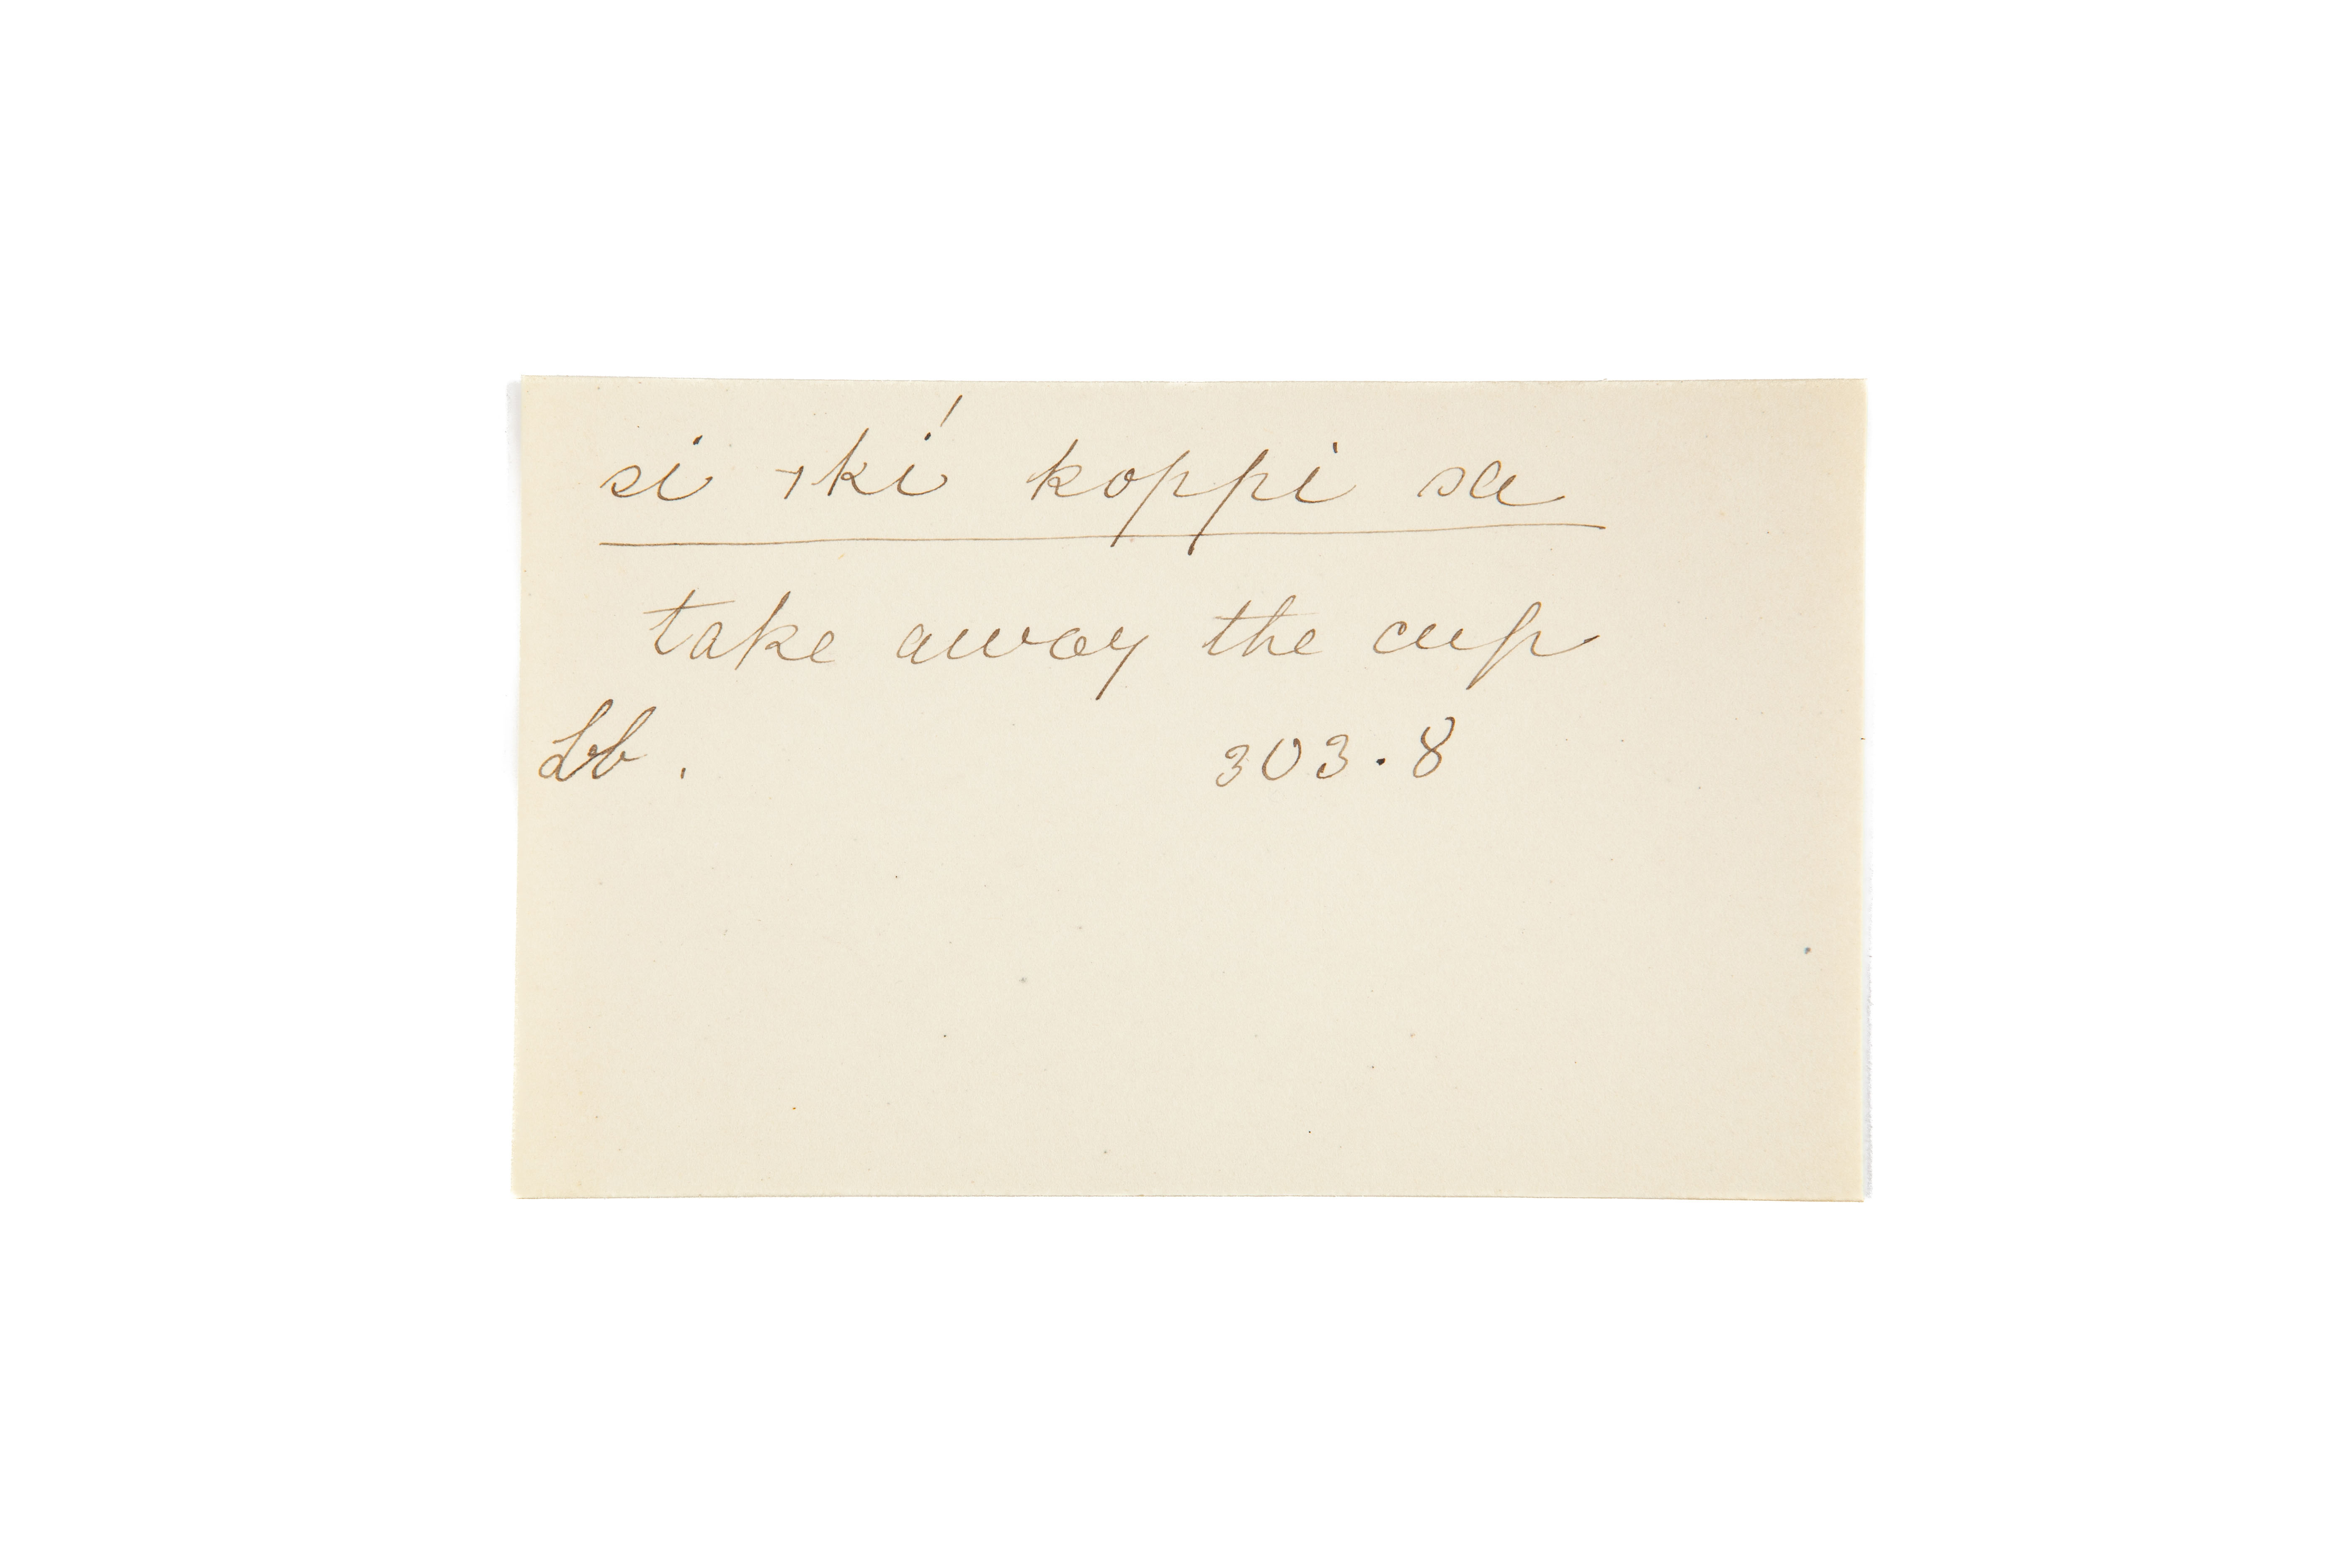 si ⌐ki koppi sa
take away the cup
Lb. 303.8